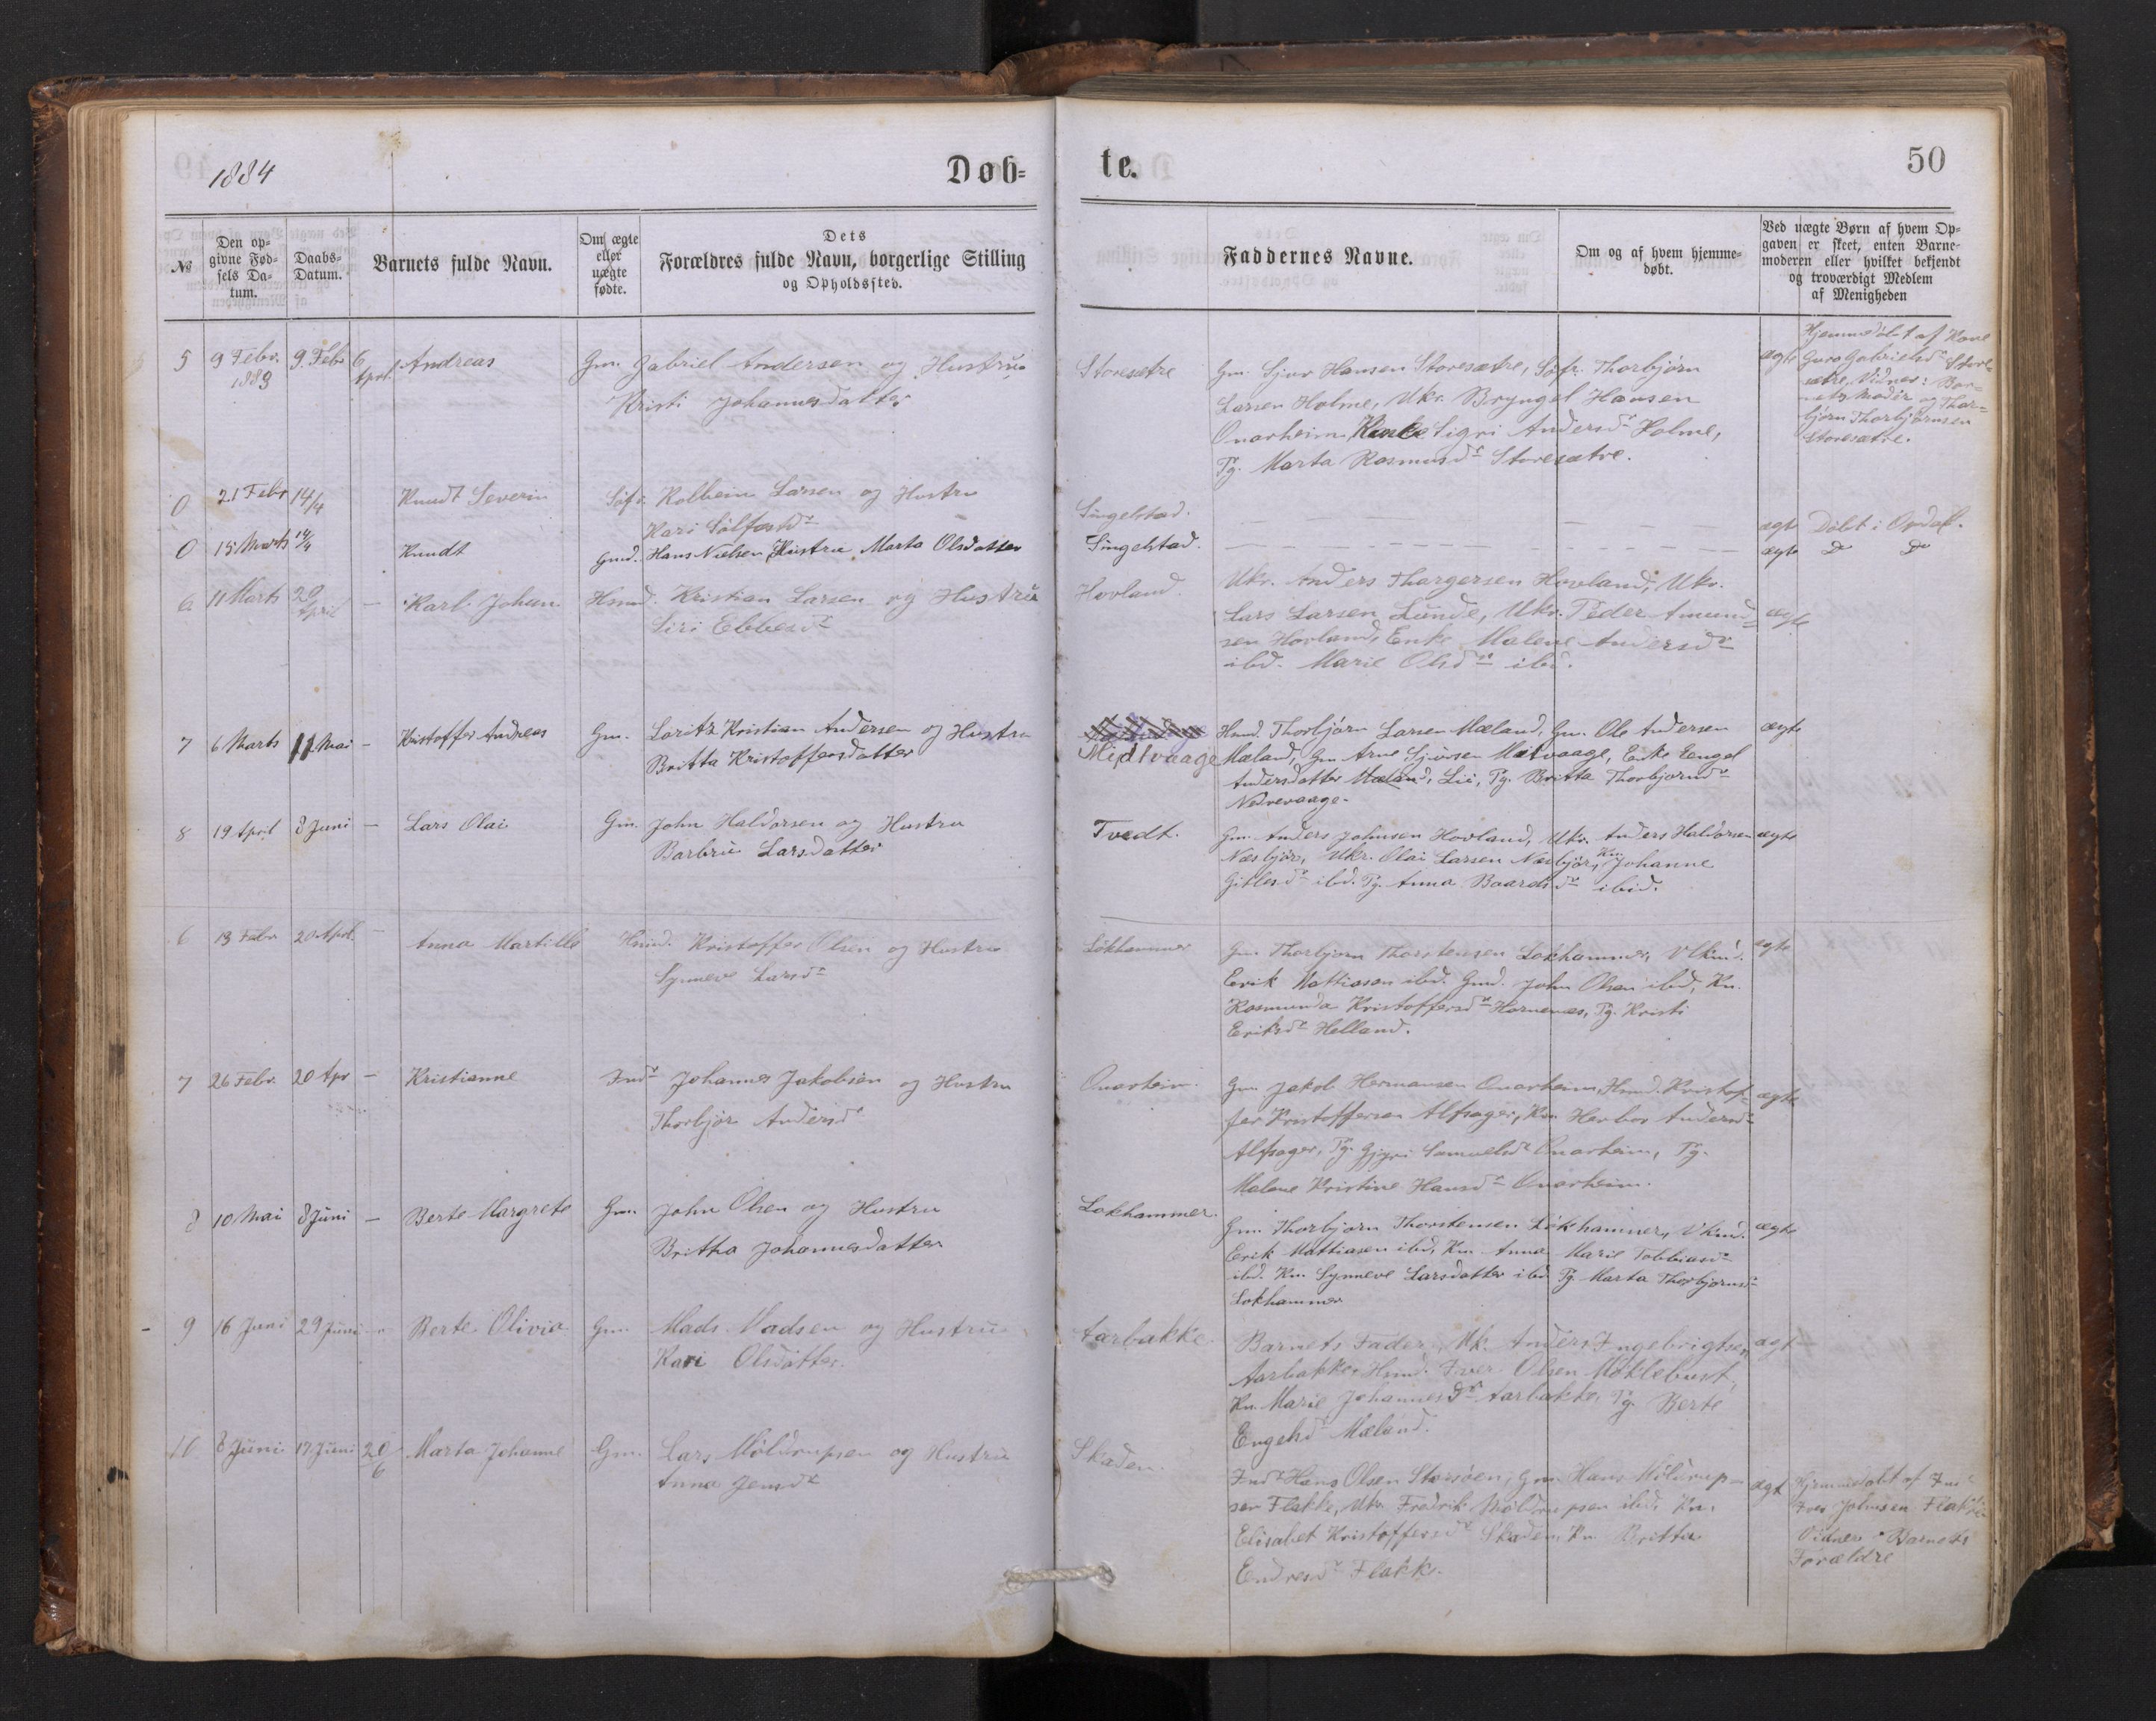 1884
Døb-
te.
50
№
Den op-
givne Fød-
sels Da-
tum.
Daabs-
Datum.
Barnets fulde Navn.
Om ægte
eller
uægte
fødte.
Dets
Forældres fulde Navn, borgerlige Stilling
og Opholdssted.
Faddernes Navne.
Om og af hvem hjemme-
døbt.
Ved uægte Børn af hvem Op-
gaven er skeet, enten Barne-
moderen eller hvilket bekjendt
og troværdigt Medlem
af Menigheden
5 9 Febr. 9. Febr 6 Andreas Gm. Gabriel Andersen og Hustru Storesætre
1883 April
Kristi Johannesdatter
Gm. Sjur Hansen Storesætre, Søfr. Thorbjørn
Larsen Holme, Ukr. Bryngel Hansen
Onarheim, Sigri Andersdr Holme,
Pg. Marta Rasmusdr Storesætre.
ægte
Hjemmedøbt af Kone
Guro Gabrielsdr Store-
sætre, Vidner: Bar-
nets Moder og Thor-
bjørn Thorbjørnsen
Storesætre.
0 21 Febr 14/4 Knudt Severin Søfr. Kolbein Larsen og Hustru Singelstad. ægt Døbt i Opdal.
Kari Sølfæstdr
0 15 Marts 14/4 Knudt Gmd. Hans Nielsen Hustru Marta Olsdatter Singelstad. ægte Do Do
6 11 Marts 20 April — Karl Johan Hsmd. Kristian Larsen og Hustru Hovland.
Siri Ebbesdr
Ukr. Anders Thorgersen Hovland, Ukr.
Lars Larsen Lunde, Ukr. Peder Amund-
sen Hovland, Enke Malene Andersdr
ibd. Marie Olsdr ibd.
ægte
7 6 Marts 11 Mai — Kristoffer Andreas Gm. Laritz Kristian Andersen og Hustru Midtvaage
Britta Kristoffersdatter
Hmd. Thorbjørn Larsen Mæland, Gm. Ole Andersen
Mæland, Gm Arne Sjursen Midtvaage, Enke Engel
Andersdatter Mæland, Lii, Pg. Britta Thorbjørnsdr
Nedrevaage.
ægte
8 19 April 8 Juni — Lars Olai Gm. John Haldorsen og Hustru Tvedt.
Barbru Larsdatter
Gm. Anders Johnsen Hovland, Ukr. Anders Haldorsen
Næsbjør, Ukr. Olai Larsen Næsbjør, Kn. Johanne
Gitlesdr ibd. Pg. Anna Baardsdr ibid.
ægte
6 13 Febr 20 April — Anna Martille Hmd. Kristoffer Olsen og Hustru Løkhammer
Synneve Larsdr
Gm. Thorbjørn Thorstensen Løkhammer,
Erik Mattiasen ibd. Gmd. John Olsen ibd, Kn.
Rasmunda Kristoffersdr Hornenæs, Pg. Kristi
Eriksdr Helland.
ægte
7 26 Febr. 20 Apr — Kristianne Indr Johannes Jakobsen og Hustru Onarheim.
Thorbjør Andersdr
Gm. Jakob Hermansen Onarheim, Hmd. Kristof-
fer Kristoffersen Alfsager, Kn Herbor Andersdr
Alfsager, Pg. Gjyri Samuelsdr Onarheim, Pg.
Malene Kristine Hansdr Onarheim.
ægte
8 10 Mai 8 Juni — Berte Margrete Gm. John Olsen og Hustru Lokhammer.
Britha Johannesdatter
Gm. Thorbjørn Thorstensen Løkhammer,
Erik Mattiasen ibd, Kn. Anna Marie Tobbiasdr
ibd. Kn. Synneve Larsdatter ibd Pg. Marta Thorbjørnsdr
Lokhammer
ægte
9 16 Juni 29 Juni Berte Olivia Gm. Mads Madsen og Hustru Aarbakke.
Kari Olsdatter.
Barnets Fader, Uk. Anders Ingebrigtsen
Aarbakke, Hsmd. Iver Olsen Møklebust,
Kn. Marie Johannesdr Aarbakke, Pg. Berte
Engelsdr Mæland.
ægt
10 8 Juni 17 Juni 29/6 Marta Johanne Gm. Lars Møldrupsen og Hustru Skaden.
Anna Jensdr
Indr Hans Olsen Storsøen, Gm. Hans Møldrup-
sen Flakke, Ukr. Fredrik Møldrupsen ibd, Kn.
Elisabet Kristoffersdr Skaden, Kn Britta
Endresdr Flakke.
ægt
Hjemmedøbt af Indr
Iver Johnsen Flakke
Vidner Barnets
Forældre